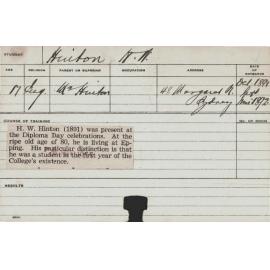 STUDENT Hinton H. W.
AGE RELIGION PARENT OR GUARDIAN OCCUPATION ADDRESS DATE OF ENTRANCE
17 Mr Hinton 48 Margaret St. Oct 1891
Sydney 1892
COURSE OF TRAINING
H. W. Hinton (1891) was present at
the Diploma Day celebrations. At the
ripe old age of 80, he is living at Ep-
ping. His particular distinction is that
he was a student in the first year of the
College's existence.
RESULTS